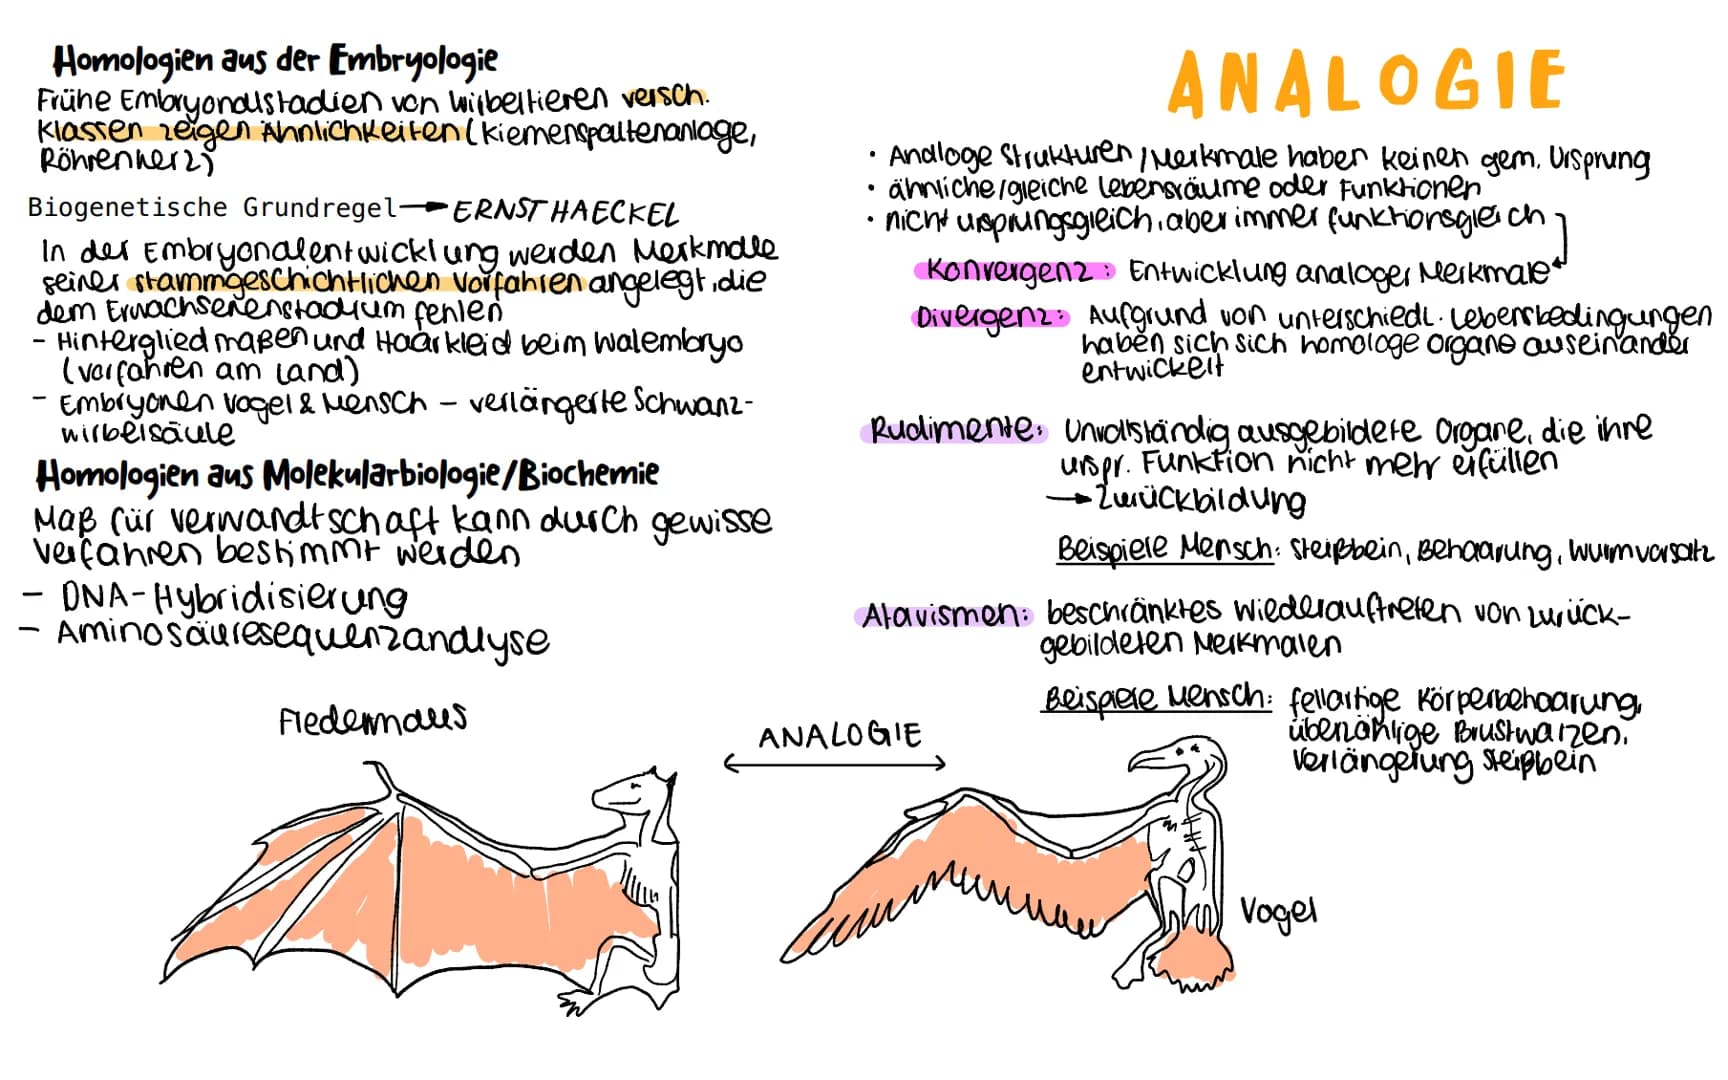 Homologien aus der Embryologie
Frühe Embryonalstadien von Wirbeltieren versch.
Klassen zeigen Ähnlichkeiten (Kiemenspaltenanlage,
Röhrenherz)
Biogenetische Grundregel → ERNST HAECKEL
In der Embryonalentwicklung werden Merkmale
seiner stammgeschichtlichen Vorfahren angelegt, die
dem Erwachsenenstadium fehlen
- Hintergliedmaßen und Haarkleid beim Walembryo
(Vorfahren am Land)
- Embryonen Vogel & Mensch – verlängerte Schwanz-
wirbelsäule
Homologien aus Molekularbiologie/Biochemie
Maß für Verwandtschaft kann durch gewisse
Verfahren bestimmt werden
- DNA-Hybridisierung
- Aminosäuresequenzanalyse
Fledermaus
ANALOGIE
• Analoge Strukturen / Merkmale haben keinen gem. Ursprung
• ähnliche/gleiche Lebensräume oder Funktionen
• nicht ursprungsgleich, aber immer funktionsgleich
Konvergenz: Entwicklung analoger Merkmale
Divergenz: Aufgrund von unterschiedl. Lebensbedingungen
haben sich sich homologe Organe auseinander
entwickelt
Rudimente: Unvollständig ausgebildete Organe, die ihre
urspr. Funktion nicht mehr erfüllen
→ Zurückbildung
Beispiele Mensch: Steißbein, Behaarung, Wurmvorsatz
Atavismen: beschränktes Wiederauftreten von zurück-
gebildeten Merkmalen
Beispiele Mensch: fellartige Körperbehaarung,
überzählige Brustwarzen,
Verlängerung Steißbein
ANALOGIE
Vogel